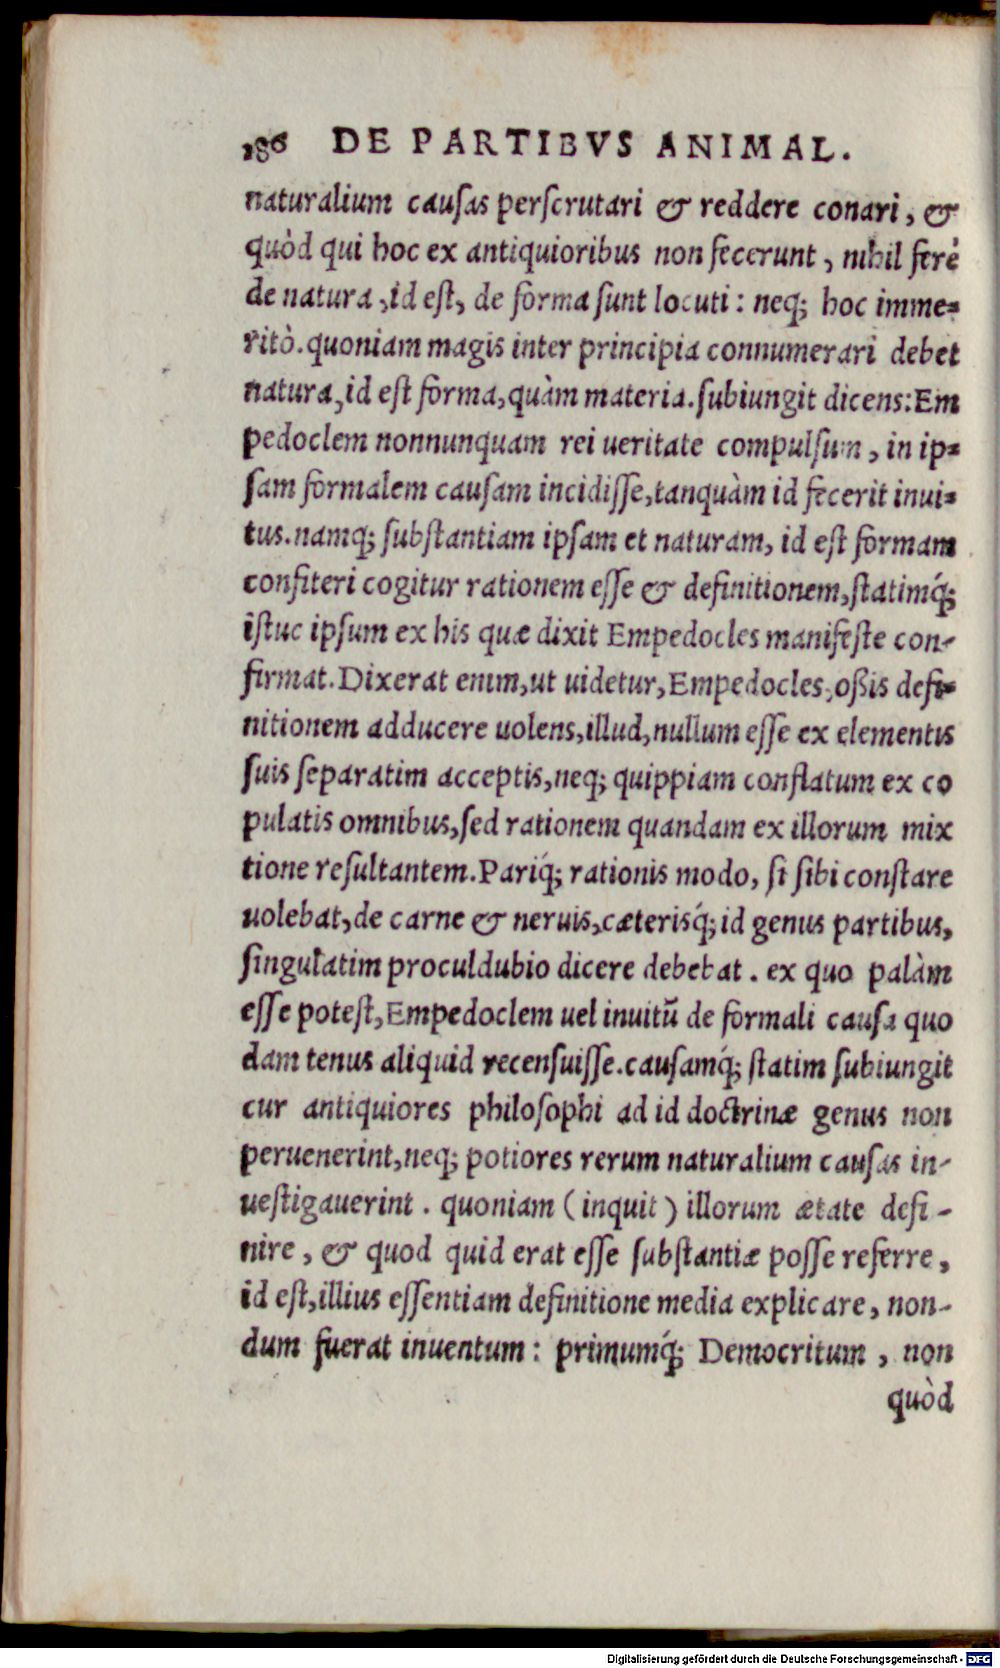 186 DE PARTIBVS ANIMAL.
naturalium causas perscrutari & reddere conari, &
quòd qui hoc ex antiquioribus non fecerunt, nihil ferè
de natura, id est, de forma sunt locuti: neq; hoc imme-
ritò. quoniam magis inter principia connumerari debet
natura, id est forma, quàm materia. subiungit dicens: Em
pedoclem nonnunquam rei ueritate compulsum, in ip-
sam formalem causam incidisse, tanquàm id fecerit inui-
tus. namq; substantiam ipsam et naturam, id est formam
confiteri cogitur rationem esse & definitionem, statimq́;
istuc ipsum ex his quæ dixit Empedocles manifeste con-
firmat. Dixerat enim, ut uidetur, Empedocles, oßis defi-
nitionem adducere uolens, illud, nullum esse ex elementis
suis separatim acceptis, neq; quippiam conflatum ex co
pulatis omnibus, sed rationem quandam ex illorum mix
tione resultantem. Pariq́; rationis modo, si sibi constare
uolebat, de carne & neruis, cæterisq́; id genus partibus,
singulatim proculdubio dicere debebat. ex quo palàm
esse potest, Empedoclem uel inuitū de formali causa quo
dam tenus aliquid recensuisse. causamq́; statim subiungit
cur antiquiores philosophi ad id doctrinæ genus non
peruenerint, neq; potiores rerum naturalium causas in-
uestigauerint. quoniam (inquit) illorum ætate defi-
nire, & quod quid erat esse substantiæ posse referre,
id est, illius essentiam definitione media explicare, non-
dum fuerat inuentum: primumq́; Democritum, non
quòd
Digitalisierung gefördert durch die Deutsche Forschungsgemeinschaft - DFG